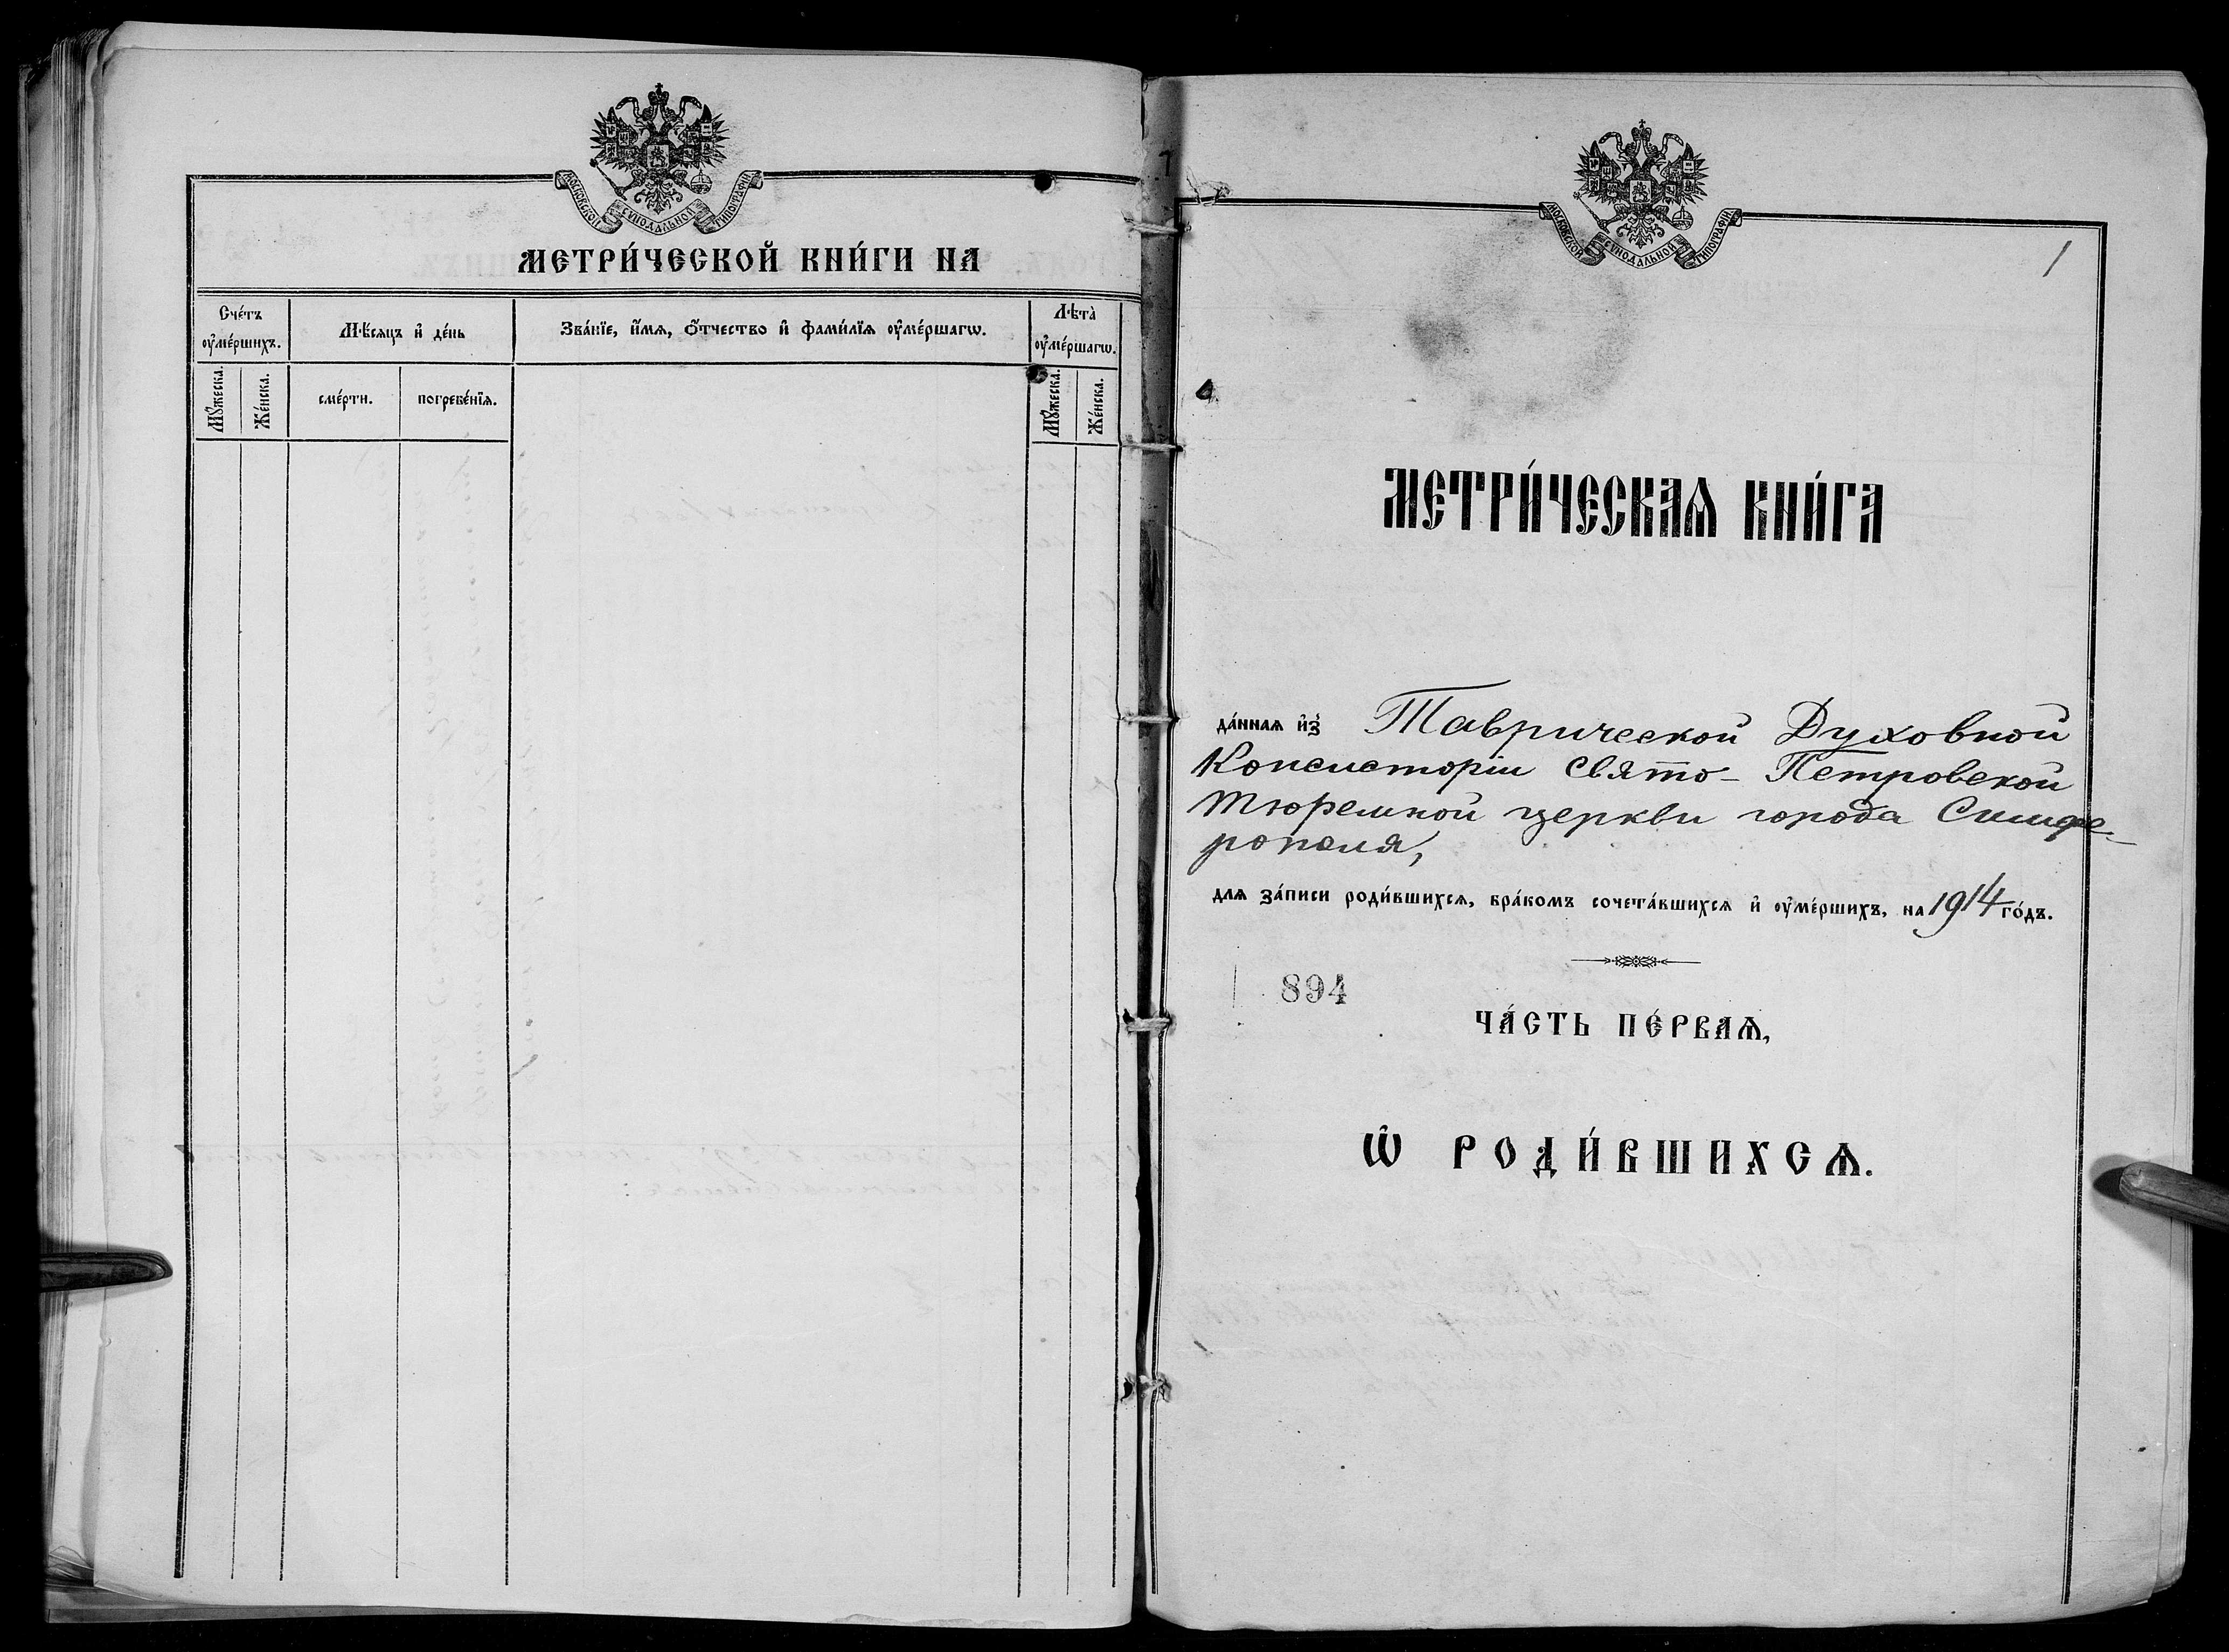 МОСКОВСКОЙ СѴНОДАЛЬНОЙ ТИПОГРАФІИ
МЕТРИ́ЧЕСКОЙ КНИ́ГИ НА
Сче́тъ ᲂу҆ме́ршихъ.
Мѣ́сяцъ и҆ де́нь
Зва́нїе, и҆́мѧ, ѻ҆́тчество и҆ фами́лїѧ ᲂу҆ме́ршагѡ.
Лѣта̀ ᲂу҆ме́ршагѡ.
Мꙋ́жеска.
Же́нска.
сме́рти.
погребе́нїѧ.
Мꙋ́жеска.
Же́нска.
МОСКОВСКОЙ СѴНОДАЛЬНОЙ ТИПОГРАФІИ
1
МЕТРИ́ЧЕСКАѦ КНИ́ГА
да́ннаѧ и҆з̾ Таврической Духовной
Консисторіи Свято-Петровской
тюремной церкви города Симфе-
рополя,
для за́писи роди́вшихсѧ, бра́комъ сочета́вшихсѧ и҆ ᲂу҆ме́ршихъ, на 1914 го́дъ.
894
ЧА́СТЬ ПЕ́РВАѦ,
Ѡ҆ РОДИ́ВШИХСѦ.